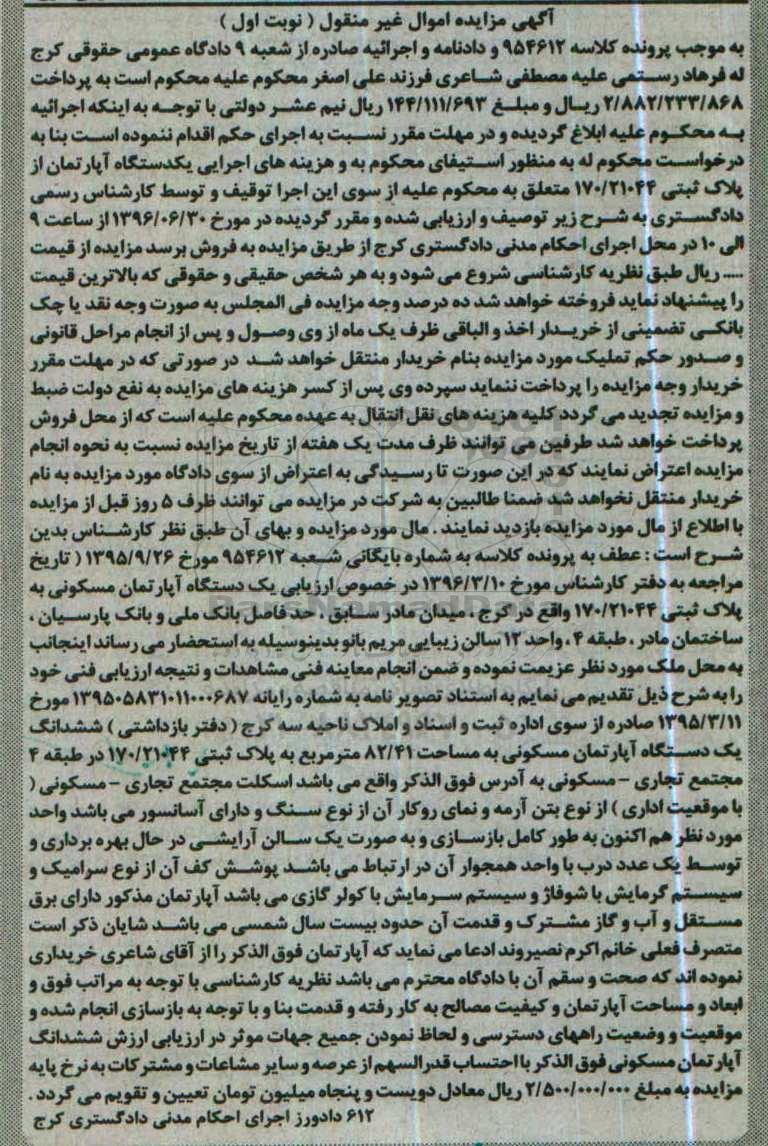 آگهی مزایده اموال غیر منقول ( نوبت اول )
به موجب پرونده کلاسه ۹۵۴۶۱۲ و دادنامه و اجرائیه صادره از شعبه ۹ دادگاه عمومی حقوقی کرج
له فرهاد رستمی علیه مصطفی شاعری فرزند علی اصغر محکوم علیه محکوم است به پرداخت
۲/۸۸۲/۲۳۳/۸۶۸ ریال و مبلغ ۱۴۴/۱۱۱/۶۹۳ ریال نیم عشر دولتی با توجه به اینکه اجرائیه
به محکوم علیه ابلاغ گردیده و در مهلت مقرر نسبت به اجرای حکم اقدام ننموده است بنا به
درخواست محکوم له به منظور استیفای محکوم به و هزینه های اجرایی یکدستگاه آپارتمان از
پلاک ثبتی ۱۷۰/۲۱۰۴۴ متعلق به محکوم علیه از سوی این اجرا توقیف و توسط کارشناس رسمی
دادگستری به شرح زیر توصیف و ارزیابی شده و مقرر گردیده در مورخ ۱۳۹۶/۰۶/۳۰ از ساعت ۹
الی ۱۰ در محل اجرای احکام مدنی دادگستری کرج از طریق مزایده به فروش برسد مزایده از قیمت
..... ریال طبق نظریه کارشناسی شروع می شود و به هر شخص حقیقی و حقوقی که بالاترین قیمت
را پیشنهاد نماید فروخته خواهد شد ده درصد وجه مزایده فی المجلس به صورت وجه نقد یا چک
بانکی تضمینی از خریدار اخذ و الباقی ظرف یک ماه از وی وصول و پس از انجام مراحل قانونی
و صدور حکم تملیک مورد مزایده بنام خریدار منتقل خواهد شد در صورتی که در مهلت مقرر
خریدار وجه مزایده را پرداخت ننماید سپرده وی پس از کسر هزینه های مزایده به نفع دولت ضبط
و مزایده تجدید می گردد کلیه هزینه های نقل انتقال به عهده محکوم علیه است که از محل فروش
پرداخت خواهد شد طرفین می توانند ظرف مدت یک هفته از تاریخ مزایده نسبت به نحوه انجام
مزایده اعتراض نمایند که در این صورت تا رسیدگی به اعتراض از سوی دادگاه مورد مزایده به نام
خریدار منتقل نخواهد شد ضمنا طالبین به شرکت در مزایده می توانند ظرف ۵ روز قبل از مزایده
با اطلاع از مال مورد مزایده بازدید نمایند . مال مورد مزایده و بهای آن طبق نظر کارشناس بدین
شرح است : عطف به پرونده کلاسه به شماره بایگانی شعبه ۹۵۴۶۱۲ مورخ ۱۳۹۵/۹/۲۶ ( تاریخ
مراجعه به دفتر کارشناس مورخ ۱۳۹۶/۳/۱۰ در خصوص ارزیابی یک دستگاه آپارتمان مسکونی به
پلاک ثبتی ۱۷۰/۲۱۰۴۴ واقع در کرج ، میدان مادر سابق ، حد فاصل بانک ملی و بانک پارسیان ،
ساختمان مادر ، طبقه ۴ ، واحد ۱۲ سالن زیبایی مریم بانو بدینوسیله به استحضار می رساند اینجانب
به محل ملک مورد نظر عزیمت نموده و ضمن انجام معاینه فنی مشاهدات و نتیجه ارزیابی فنی خود
را به شرح ذیل تقدیم می نمایم به استناد تصویر نامه به شماره رایانه ۱۳۹۵۰۵۸۳۱۰۱۱۰۰۰۶۸۷ مورخ
۱۳۹۵/۳/۱۱ صادره از سوی اداره ثبت و اسناد و املاک ناحیه سه کرج ( دفتر بازداشتی ) ششدانگ
یک دستگاه آپارتمان مسکونی به مساحت ۸۲/۴۱ مترمربع به پلاک ثبتی ۱۷۰/۲۱۰۴۴ در طبقه ۴
مجتمع تجاری - مسکونی به آدرس فوق الذکر واقع می باشد اسکلت مجتمع تجاری - مسکونی (
با موقعیت اداری ) از نوع بتن آرمه و نمای روکار آن از نوع سنگ و دارای آسانسور می باشد واحد
مورد نظر هم اکنون به طور کامل بازسازی و به صورت یک سالن آرایشی در حال بهره برداری و
توسط یک عدد درب با واحد همجوار آن در ارتباط می باشد پوشش کف آن از نوع سرامیک و
سیستم گرمایش با شوفاژ و سیستم سرمایش با کولر گازی می باشد آپارتمان مذکور دارای برق
مستقل و آب و گاز مشترک و قدمت آن حدود بیست سال شمسی می باشد شایان ذکر است
متصرف فعلی خانم اکرم نصیروند ادعا می نماید که آپارتمان فوق الذکر را از آقای شاعری خریداری
نموده اند که صحت و سقم آن با دادگاه محترم می باشد نظریه کارشناسی با توجه به مراتب فوق و
ابعاد و مساحت آپارتمان و کیفیت مصالح به کار رفته و قدمت بنا و با توجه به بازسازی انجام شده و
موقعیت و وضعیت راههای دسترسی و لحاظ نمودن جمیع جهات موثر در ارزیابی ارزش ششدانگ
آپارتمان مسکونی فوق الذکر با احتساب قدرالسهم از عرصه و سایر مشاعات و مشترکات به نرخ پایه
مزایده به مبلغ ۲/۵۰۰/۰۰۰/۰۰۰ ریال معادل دویست و پنجاه میلیون تومان تعیین و تقویم می گردد .
۶۱۲ دادورز اجرای احکام مدنی دادگستری کرج